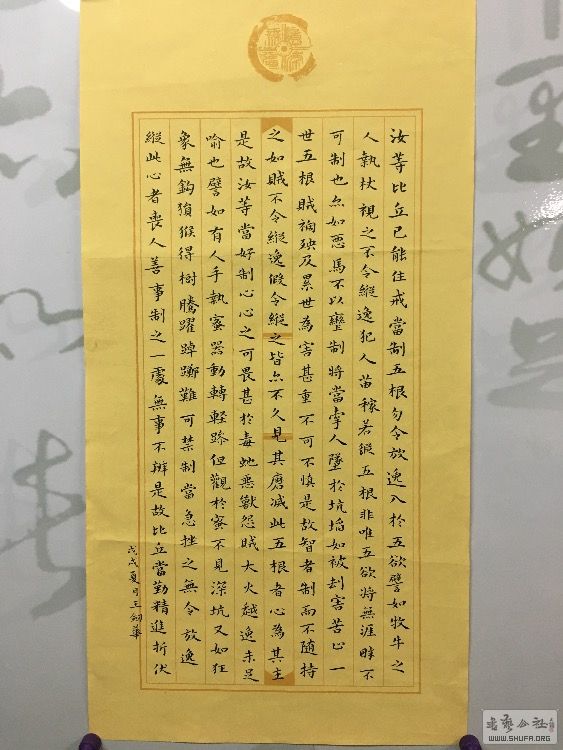 汝等比丘已能住戒當制五根勿令放逸入於五欲譬如牧牛之
人執杖視之不令縱逸犯人苗稼若縱五根非唯五欲將無涯畔不
可制也亦如惡馬不以轡制將當牽人墜於坑埳如被刦害苦止一
世五根賊禍殃及累世為害甚重不可不慎是故智者制而不隨持
之如賊不令縱逸假令縱之皆亦不久見其磨滅此五根者心為其主
是故汝等當好制心心之可畏甚於毒蛇惡獸怨賊大火越逸未足
喻也譬如有人手執蜜器動轉輕躁但觀於蜜不見深坑又如狂
象無鈎猿猴得樹騰躍踔躑難可禁制當急挫之無令放逸
縱此心者喪人善事制之一處無事不辦是故比丘當勤精進折伏
戊戌夏月王劍華
書藝公社
WWW.SHUFA.ORG